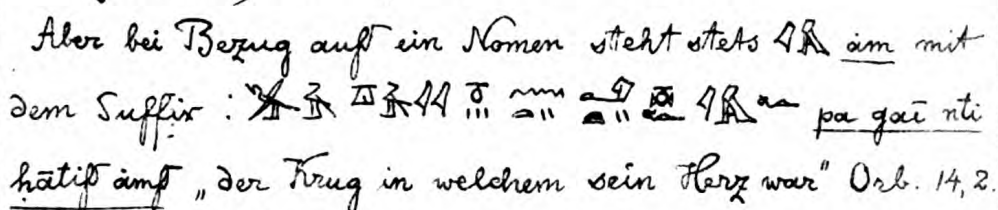 Aber bei Bezug auf ein Nomen steht stets 𓇋𓅓 ȧm mit
dem Suffix : 𓇋𓅓𓆑 pa gaī nti
ḥātif ȧmf „der Krug in welchem sein Herz war“ Orb. 14,2.